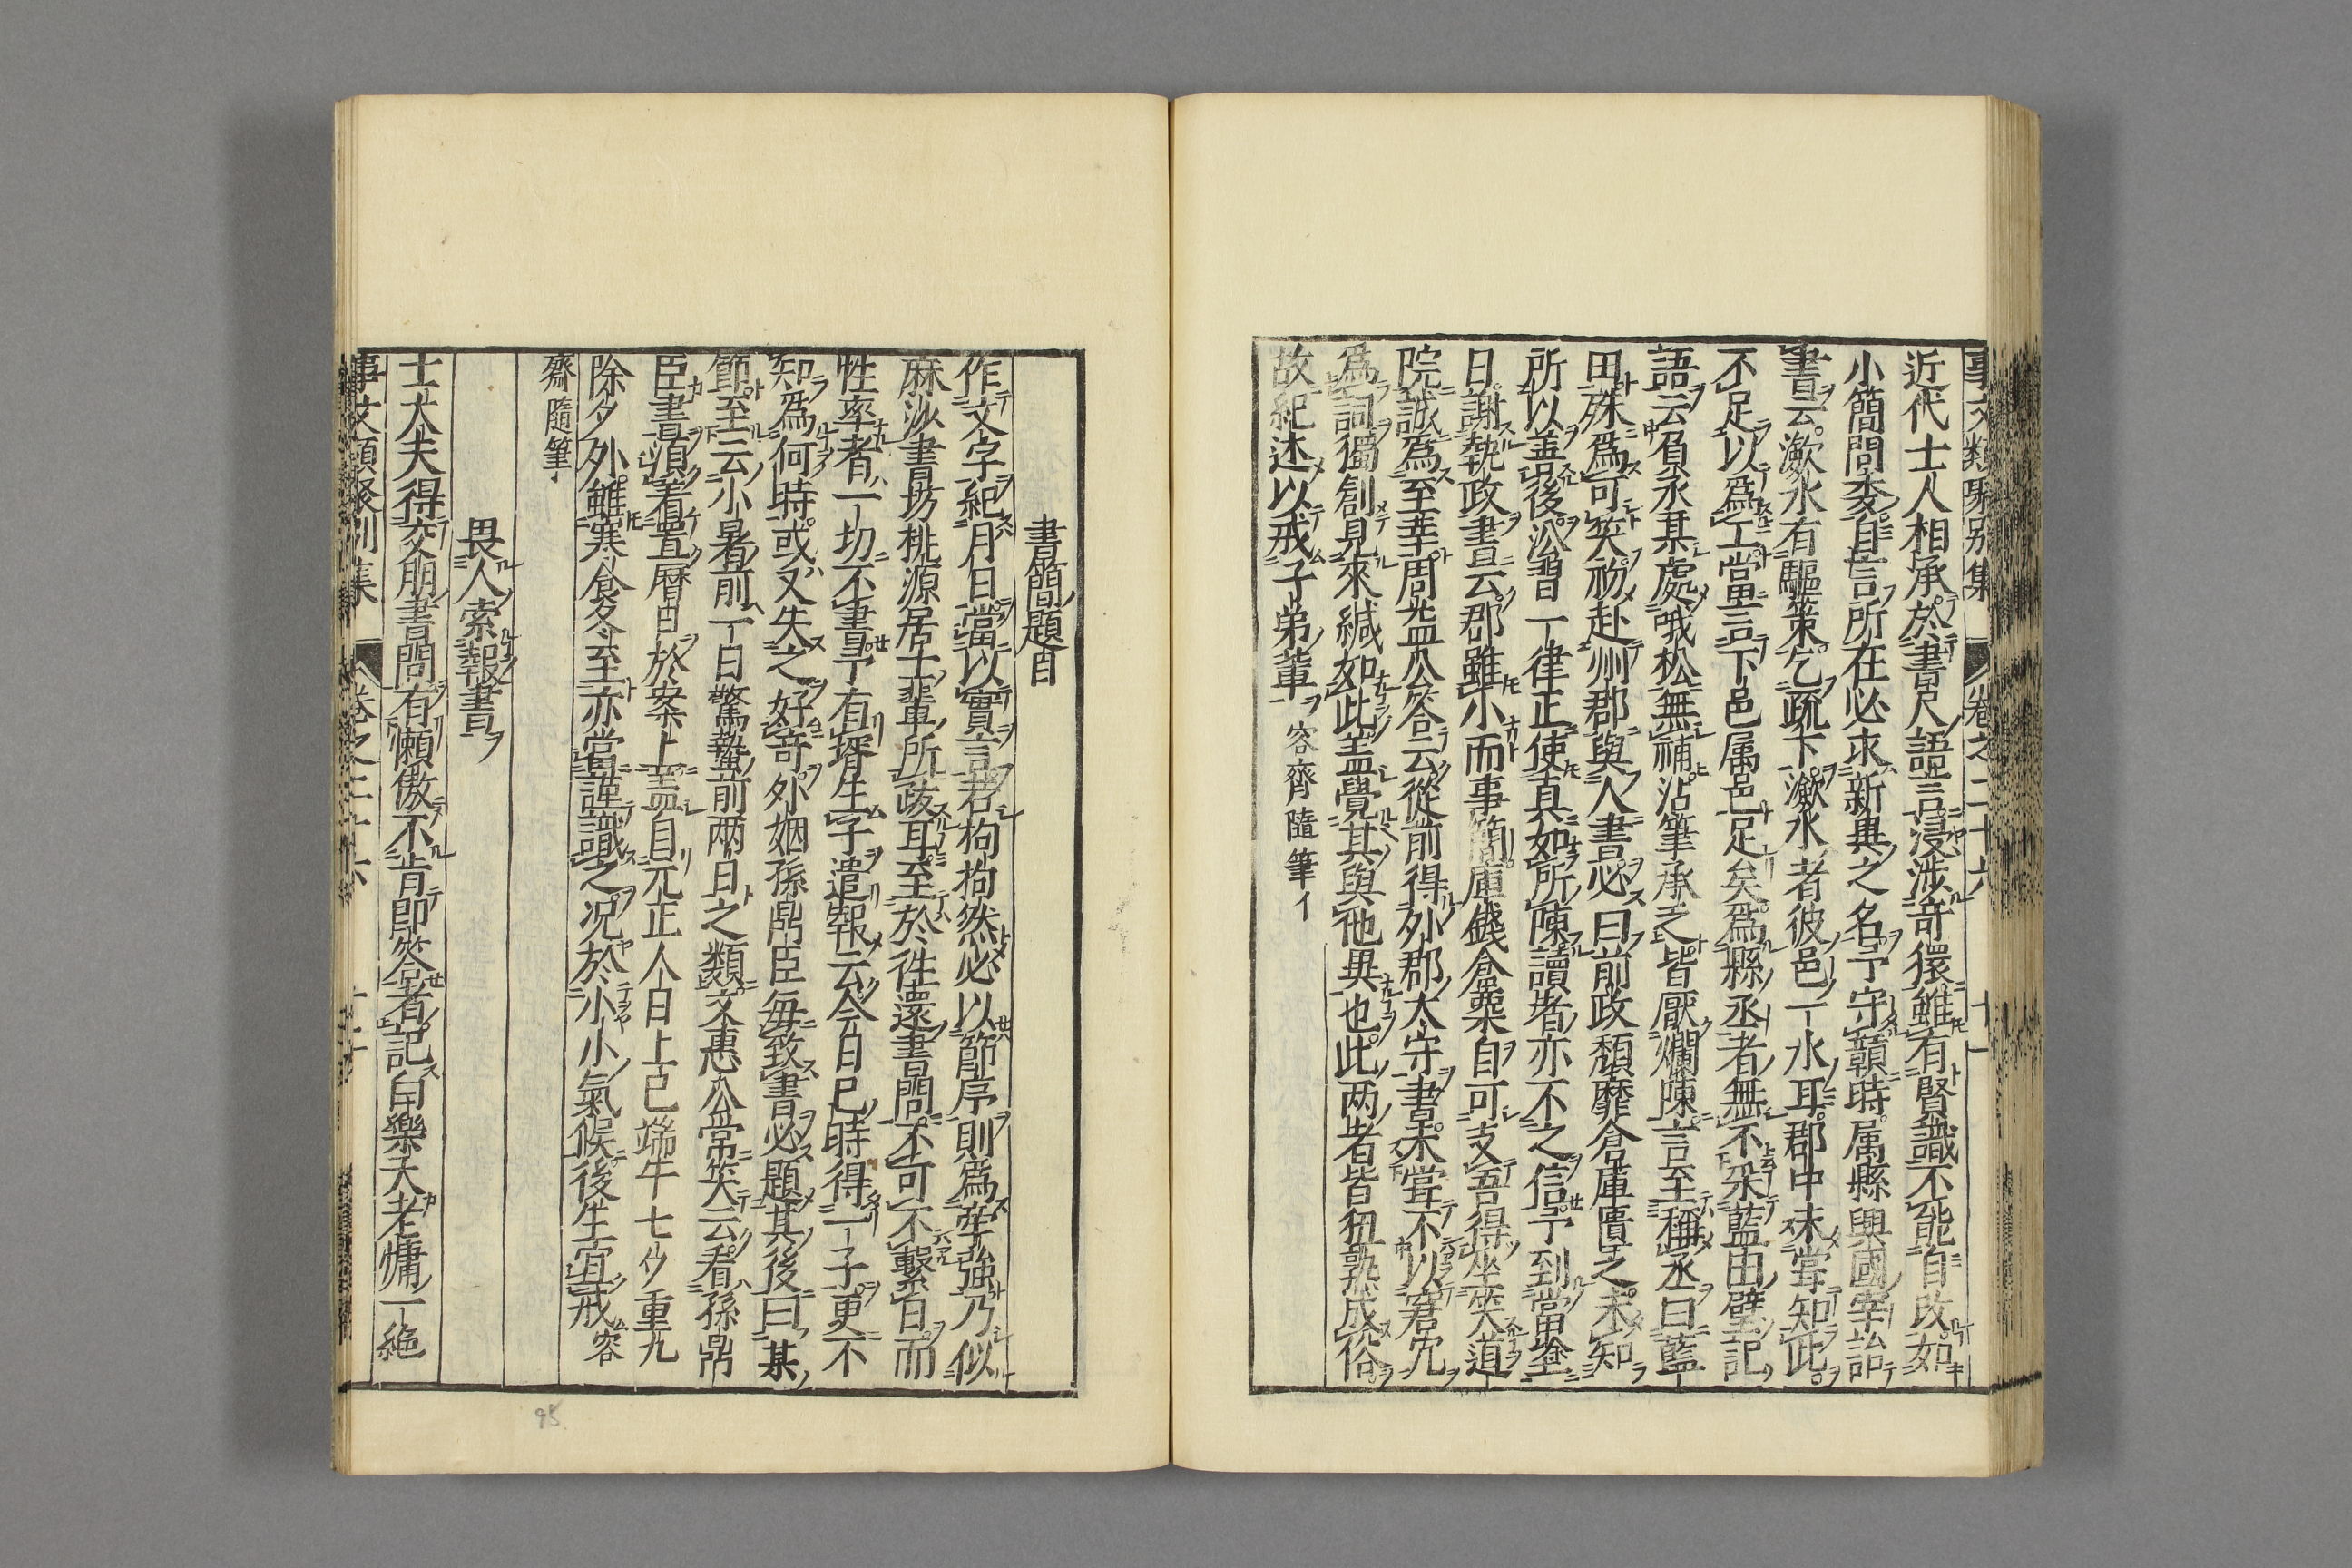 事文類聚别集 卷之二十六 十一
近代士人相承於書尺語言浸涉竒獧雖有賢識不能自改如
小簡問委自言所在必求新異之名予守贛時属縣興國宰詒
書云瀲水有驅策乞疏下瀲水者彼邑一水耳郡中未嘗知此
不足以爲工當言下邑属邑足矣爲縣丞者無不采藍田壁記
語云負丞某處哦松無補沾筆承乏皆厭爛陳言至稱丞曰藍
田殊爲可笑初赴州郡與人書必曰前政頽靡倉庫匱乏未知
所以善後㳂習一律正使真如所陳讀者亦不之信予到當塗
日謝執政書云郡雖小而事簡庫錢倉粟自可支吾得坐笑道
院誠爲至幸周益公答云從前得外郡太守書未嘗不以窘冗
爲詞獨創見來緘如此盖覺其與他異也此两者皆狃熟成俗
故紀述以戒子弟軰 容齊隨筆
書簡題目
作文字紀月日當以實言若拘拘然必以節序則爲牽强乃似
麻沙書坊桃源居士軰所跋耳至於徃還書問不可不繫日而
性率者一切不書予有壻生子遣報云今日巳時得一子更不
知爲何時或又失之好竒外姻孫鼎臣每致書必題其後曰某
節至云小暑前一日驚蟄前两日之類文惠公常笑云看孫鼎
臣書須着置曆日於案上盖自元正人日上巳端午七夕重九
除夕外雖寒食冬至亦當謹識之况於小小氣候後生宜戒 容
齋隨筆
畏人索報書
士大夫得交朋書問有懶傲不肯即答者記白樂天老慵一絶
事文類聚别集 卷之二十六